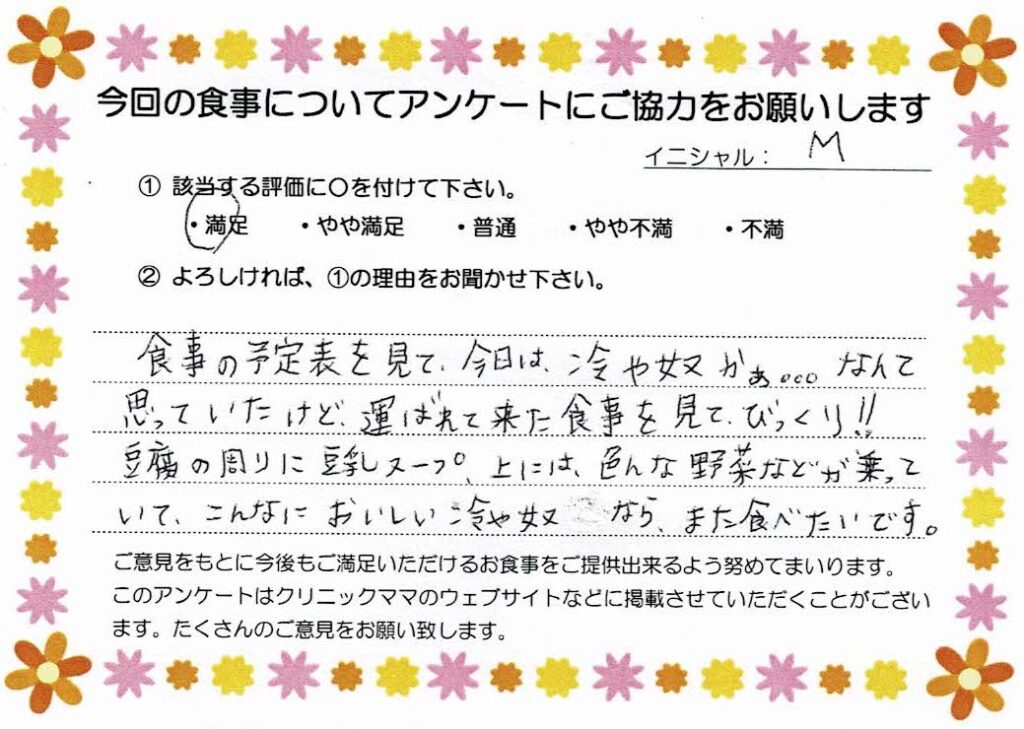 今回の食事についてアンケートにご協力をお願いします
イニシャル： M
① 該当する評価に〇を付けて下さい。
・満足 ・やや満足 ・普通 ・やや不満 ・不満
② よろしければ、①の理由をお聞かせ下さい。
食事の予定表を見て、今日は、冷や奴かぁ。。。なんて
思っていたけど、運ばれて来た食事を見て、びっくり!!
豆腐の周りに豆乳スープ、上には、色んな野菜などが乗って
いて、こんなにおいしい冷や奴なら、また食べたいです。
ご意見をもとに今後もご満足いただけるお食事をご提供出来るよう努めてまいります。
このアンケートはクリニックママのウェブサイトなどに掲載させていただくことがござい
ます。たくさんのご意見をお願い致します。